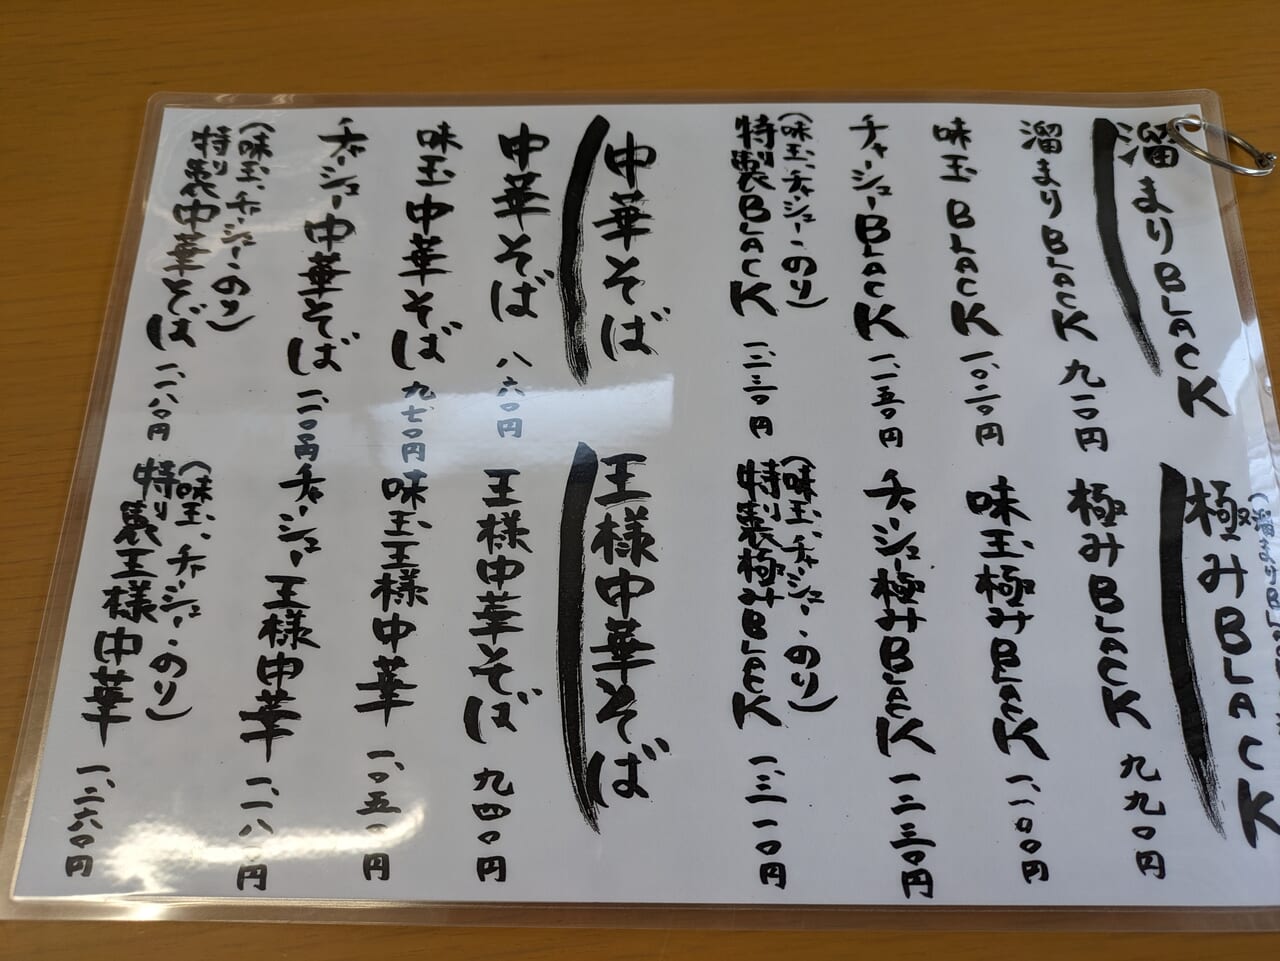 溜まりBLACK
溜まりBLACK 九一〇円
味玉BLACK 一、〇二〇円
チャーシューBLACK 一、一五〇円
(味玉、チャーシュー・のり)
特製BLACK 一、二三〇円
中華そば
中華そば 八六〇円
味玉中華そば 九七〇円
チャーシュー中華そば 一、一〇〇円
(味玉、チャーシュー・のり)
特製中華そば 一、一八〇円
極みBLACK
極みBLACK 九九〇円
味玉極みBLACK 一、一〇〇円
チャーシュー極みBLACK 一二三〇円
(味玉、チャーシュー・のり)
特製極みBLACK 一、三一〇円
王様中華そば
王様中華そば 九四〇円
味玉王様中華 一、〇五〇円
チャーシュー王様中華 一、一八〇円
(味玉、チャーシュー・のり)
特製王様中華 一、二六〇円